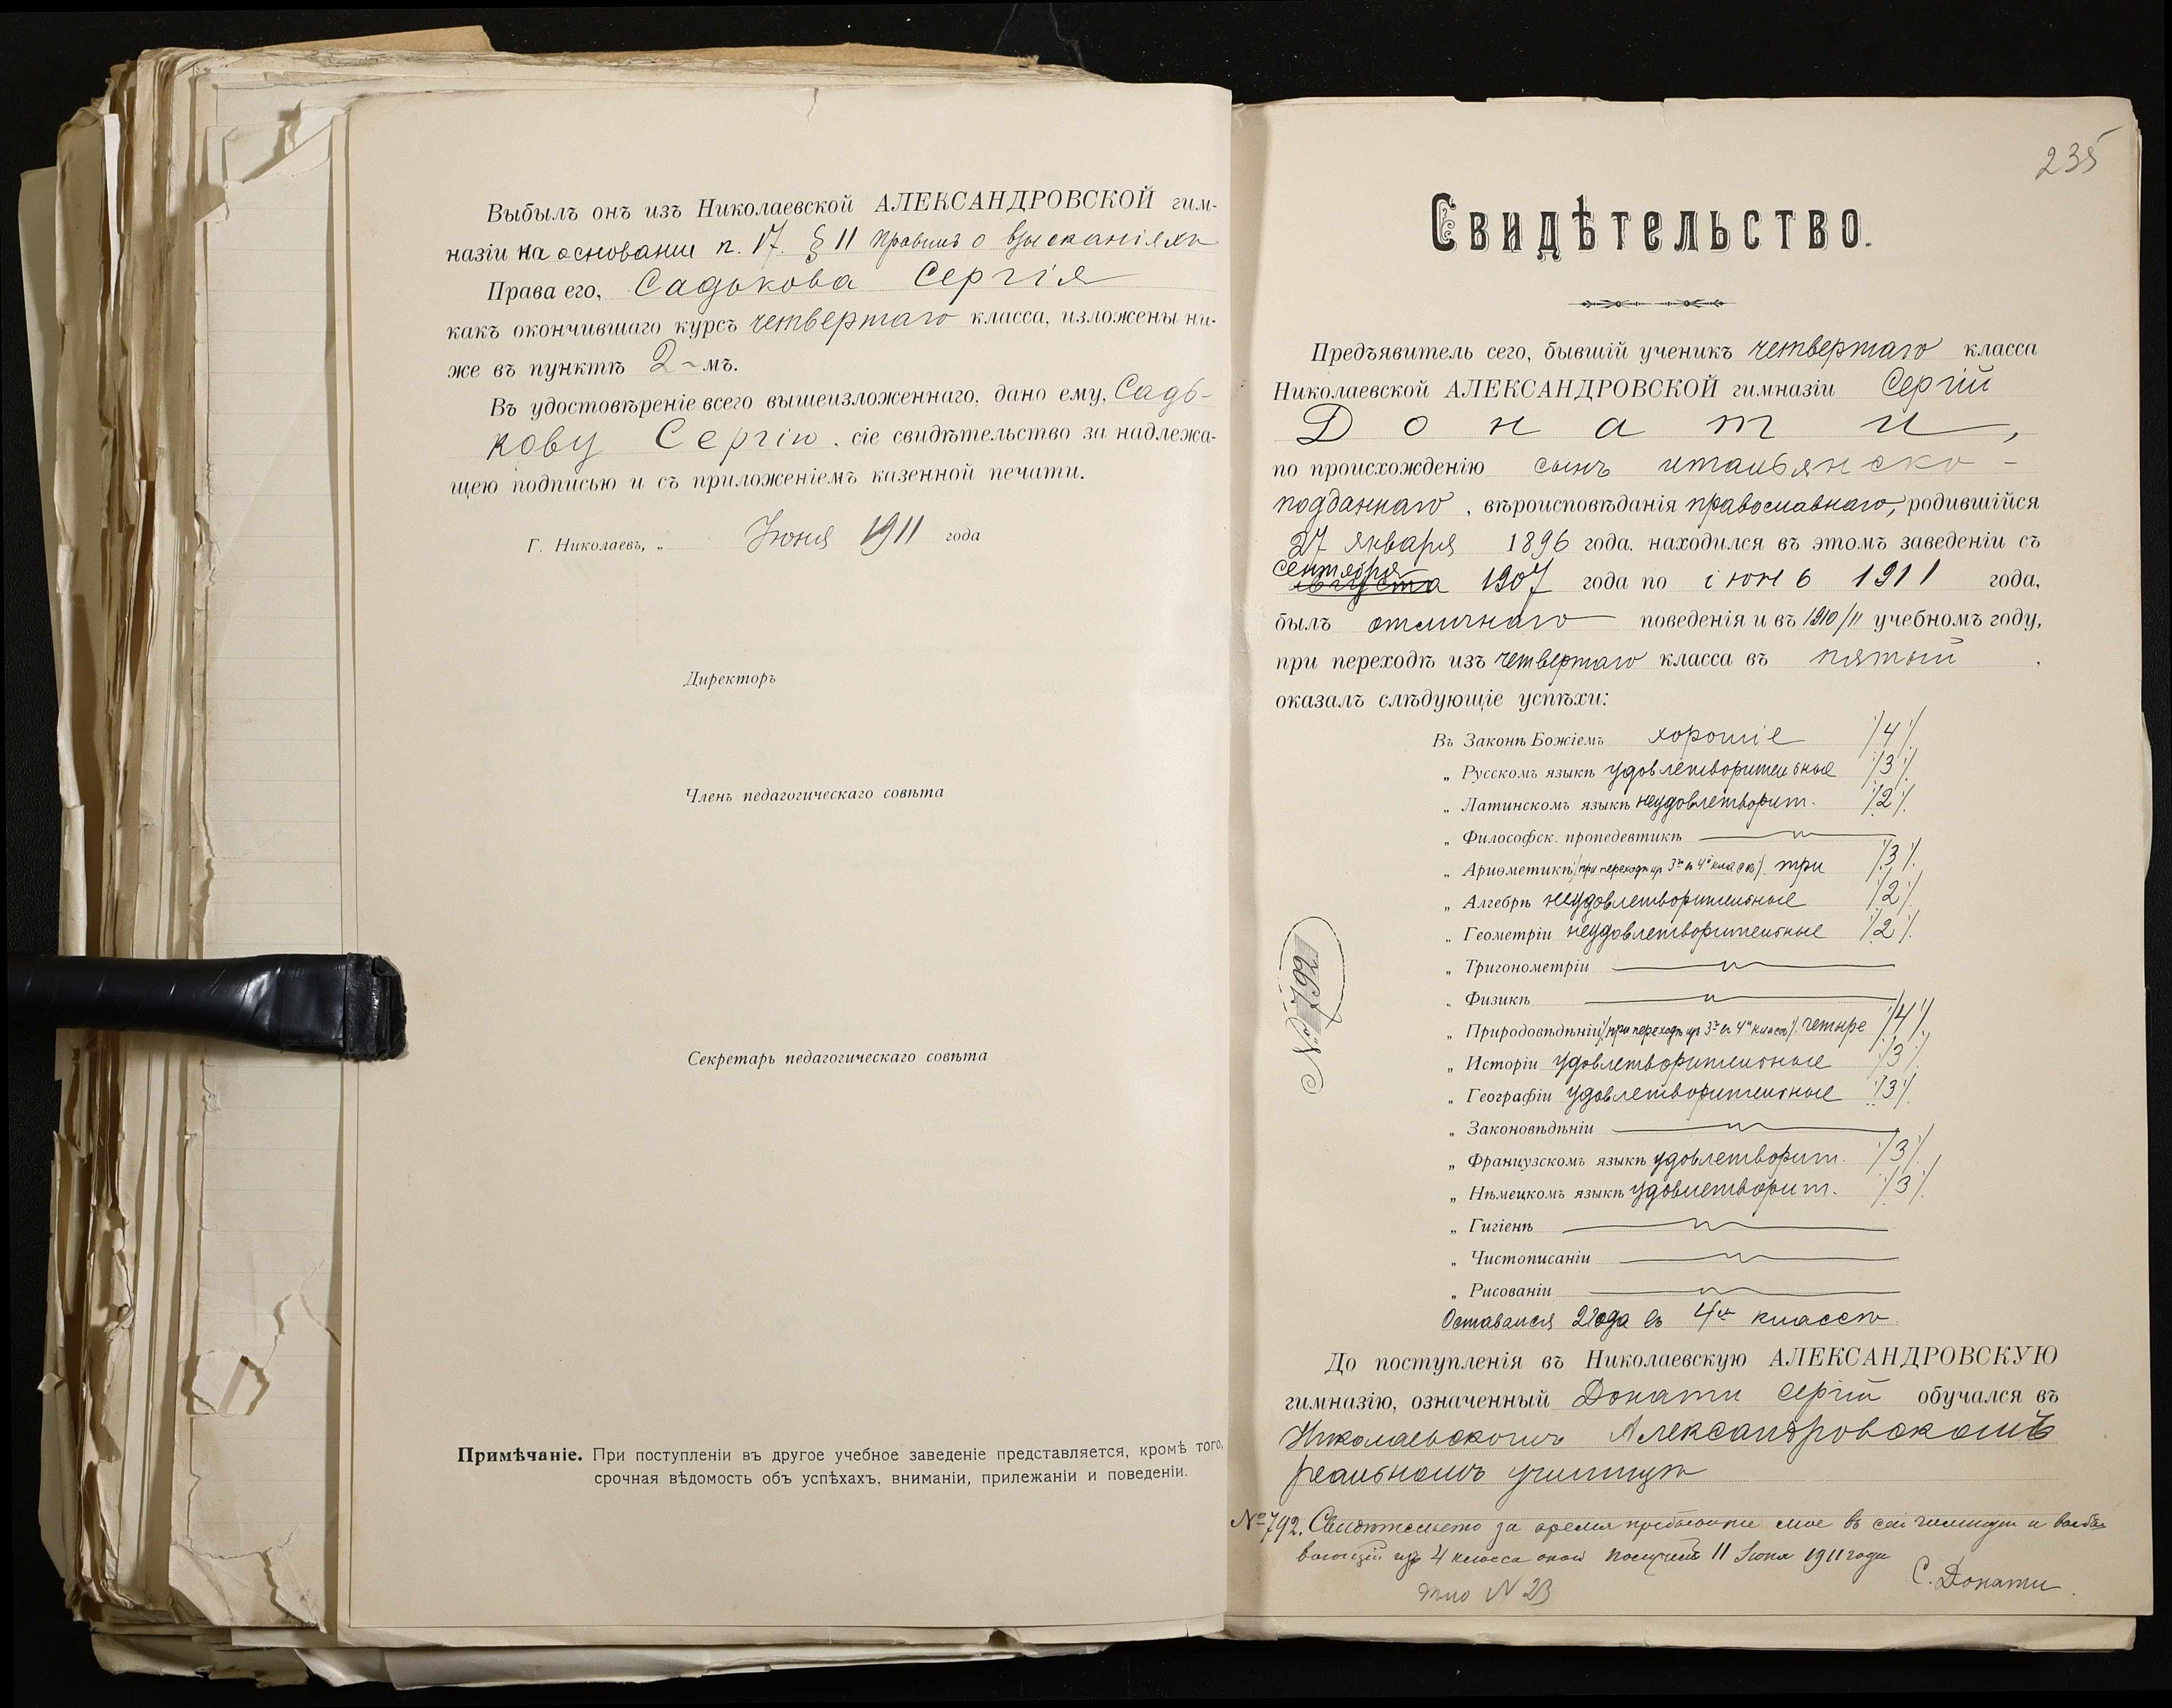 Выбылъ онъ изъ Николаевской АЛЕКСАНДРОВСКОЙ гим-
назіи на основаніи п. 17. § 11 правилъ о взысканіяхъ
Права его, Садькова Сергія
какъ окончившаго курсъ четвертаго класса, изложены ни-
же въ пунктѣ 2-мъ.
Въ удостовѣреніе всего вышеизложеннаго, дано ему, Садь-
кову Сергію, сіе свидѣтельство за надлежа-
щею подписью и съ приложеніемъ казенной печати.
Г. Николаевъ, „ Іюня 1911 года
Директоръ
Членъ педагогическаго совѣта
Секретарь педагогическаго совѣта
Примѣчаніе. При поступленіи въ другое учебное заведеніе представляется, кромѣ того,
срочная вѣдомость объ успѣхахъ, вниманіи, прилежаніи и поведеніи.
235
Свидѣтельство.
Предъявитель сего, бывшій ученикъ четвертаго класса
Николаевской АЛЕКСАНДРОВСКОЙ гимназіи Сергій
Донати,
по происхожденію сынъ итальянско-
подданнаго, вѣроисповѣданія православнаго, родившійся
27 января 1896 года, находился въ этомъ заведеніи съ
сентября
августа 1907 года по іюнь 1911 года,
былъ отличнаго поведенія и въ 1910/11 учебномъ году,
при переходѣ изъ четвертаго класса въ пятый
оказалъ слѣдующіе успѣхи:
Въ Законѣ Божіемъ хорошіе /4/.
„ Русскомъ языкѣ удовлетворительные /3/.
„ Латинскомъ языкѣ неудовлетворит. /2/.
„ Философск. пропедевтикѣ
„ Ариѳметикѣ /при переходѣ изъ 3го въ 4й классъ/. три /3/.
„ Алгебрѣ неудовлетворительные /2/.
„ Геометріи неудовлетворительные /2/.
„ Тригонометріи
„ Физикѣ
„ Природовѣдѣніи /при переходѣ изъ 3го въ 4й классъ/. четыре /4/.
„ Исторіи удовлетворительные /3/.
„ Географіи удовлетворительные /3/.
„ Законовѣдѣніи
„ Французскомъ языкѣ удовлетворит. /3/.
„ Нѣмецкомъ языкѣ удовлетворит. /3/.
„ Гигіенѣ
„ Чистописаніи
„ Рисованіи
Оставался 2 года въ 4мъ классѣ
№ 792
До поступленія въ Николаевскую АЛЕКСАНДРОВСКУЮ
гимназію, означенный Донати Сергій обучался въ
Николаевскомъ Александровскомъ
реальномъ училищѣ
№ 792. Свидѣтельство за время пребыванія мое въ сей гимназіи и
изъ 4 класса получилъ 11 Іюня 1911 года
С. Донати.
N 23